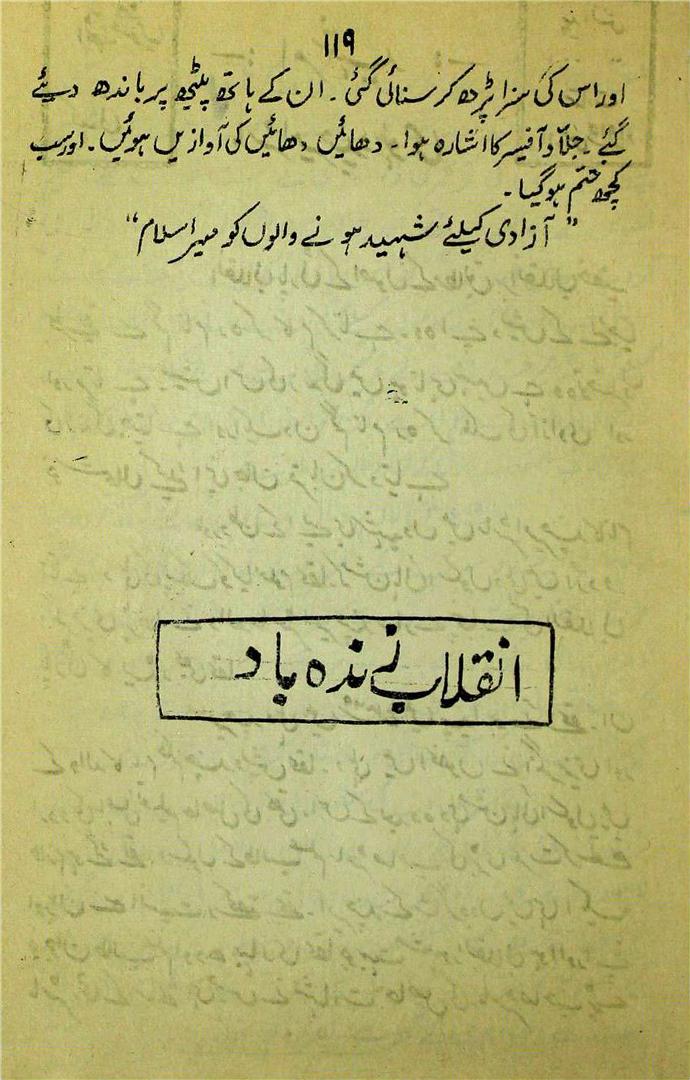 ۱۱۹
اور اس کی سزا پڑھ کر سنائی گئی۔ ان کے ہاتھ پیٹھ پر باندھ دیئے
گئے۔ جلّاد آفیسر کا اشارہ ہوا۔ دھائیں دھائیں کی آوازیں ہوئیں۔ اور سب
کچھ ختم ہو گیا۔
"آزادی کیلئے شہید ہونے والوں کو میرا سلام"
انقلاب زندہ باد